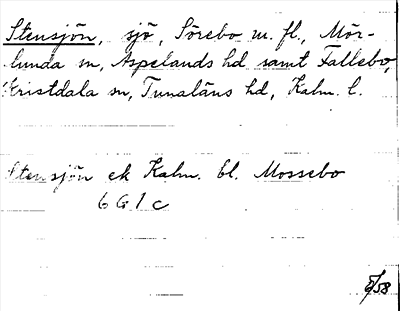 Stensjön, sjö, Sörebo m. fl., Mör-
lunda sn, Aspelands hd samt Fallebo,
Kristdala sn, Tunaläns hd, Kalm. l.
Stensjön ek Kalm. bl. Mossebo
6 G 1 c
5/58